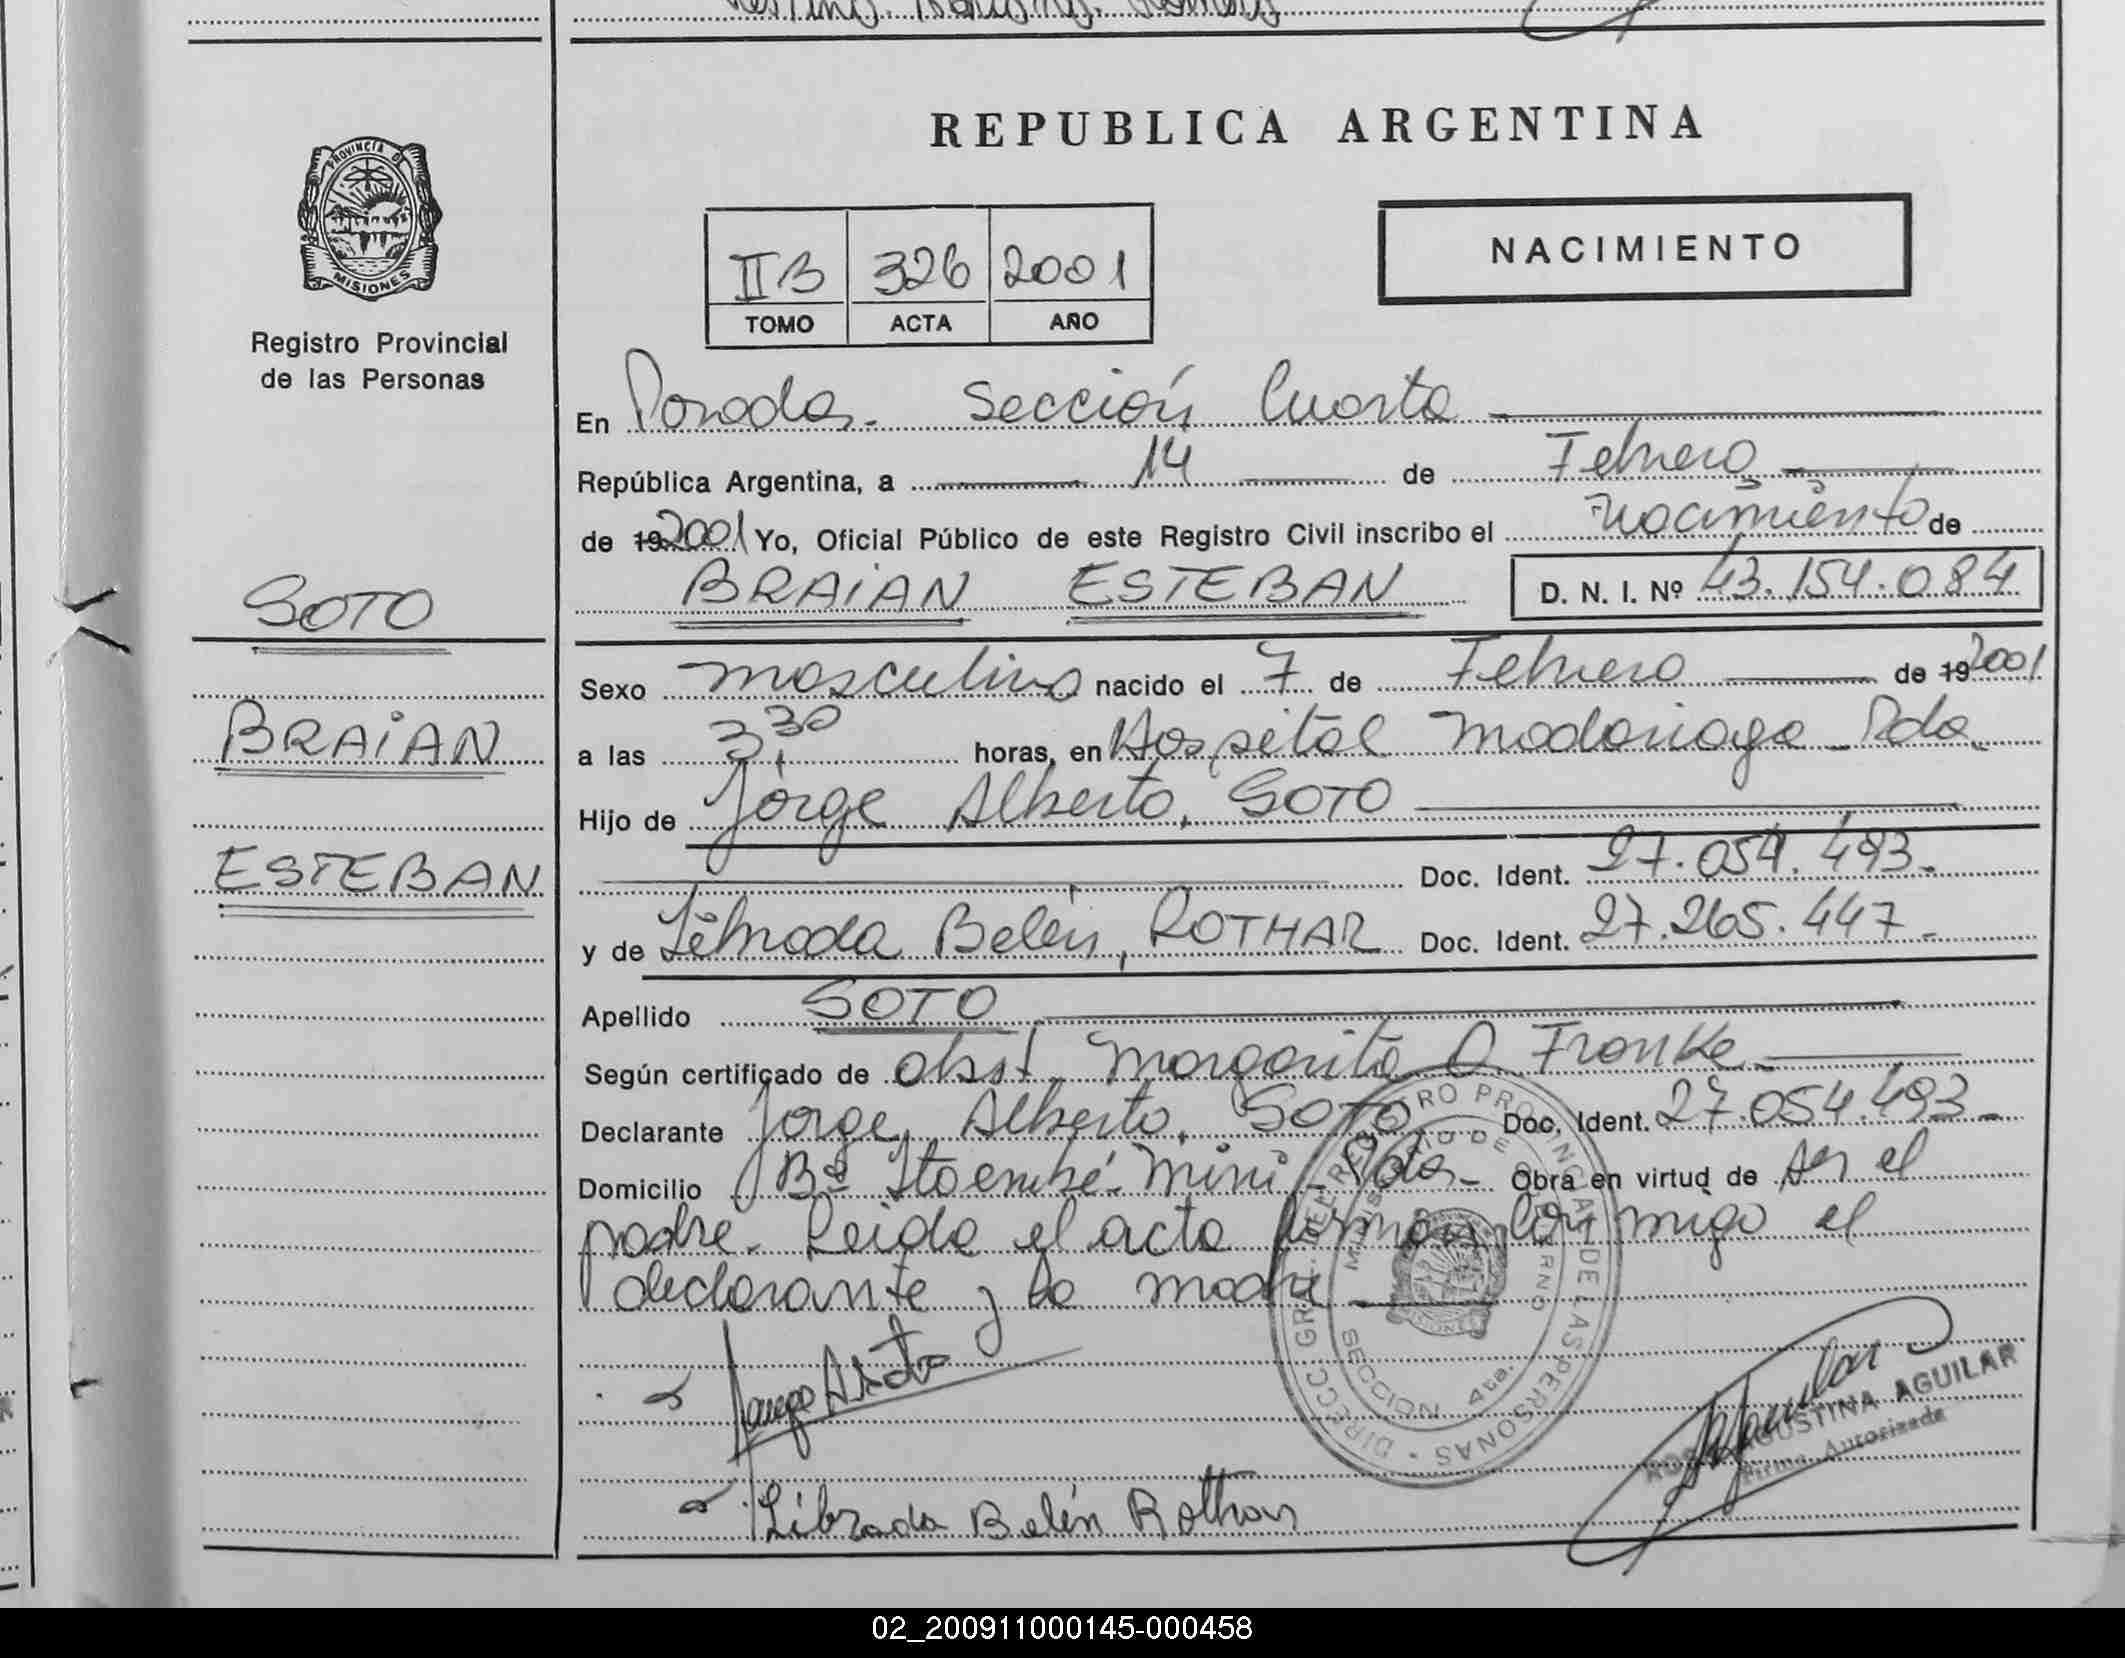 REPUBLICA ARGENTINA
PROVINCIA DE
MISIONES
Registro Provincial
de las Personas
NACIMIENTO
II B 326 2001
TOMO ACTA AÑO
En Posadas - Sección Cuarta
República Argentina, a 14 de Febrero
de 19 2001 Yo, Oficial Público de este Registro Civil inscribo el Nacimiento de
BRAIAN ESTEBAN D. N. I. Nº 43.154.084
SOTO
BRAIAN
ESTEBAN
Sexo masculino nacido el 7 de Febrero de 19 2001
a las 3,30 horas, en Hospital Madariaga - Pdas
Hijo de Jorge Alberto, SOTO
Doc. Ident. 27.054.493.-
y de Librada Belén, ROTHAR Doc. Ident. 27.265.447.-
Apellido SOTO
Según certificado de obst. Margarita O. Franke
Declarante Jorge Alberto, SOTO Doc. Ident. 27.054.493.-
Domicilio Bº Itaembé - Mini - Pdas - Obra en virtud de ser el
padre - Leida el acta firman conmigo el
declarante y la madre
DIRECC GRL. DEL REGISTRO PROVINCIAL DE LAS PERSONAS
MINISTERIO DE GOBIERNO
MISIONES
SECCION 4ta.
Jorge A Soto
Librada Belén Rothar
ROSA AGUSTINA AGUILAR
Firma Autorizada
02_200911000145-000458